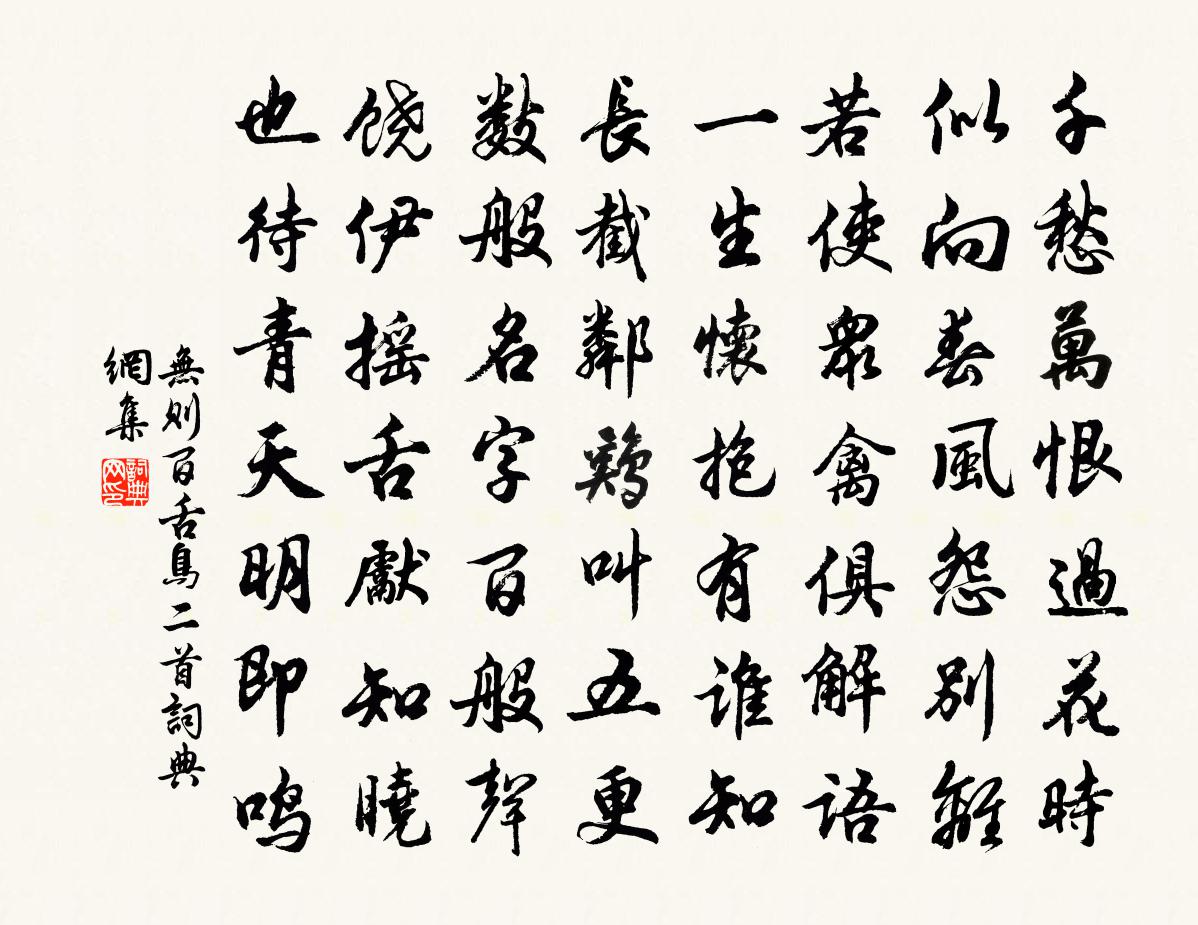 千愁萬恨過花時
似向春風怨別離
若使眾禽俱解語
一生懷抱有誰知
長截鄰鷄叫五更
數般名字百般聲
饒伊搖舌獻知曉
也待青天明即鳴
無則百舌鳥二首詞典
網集
詞典網印